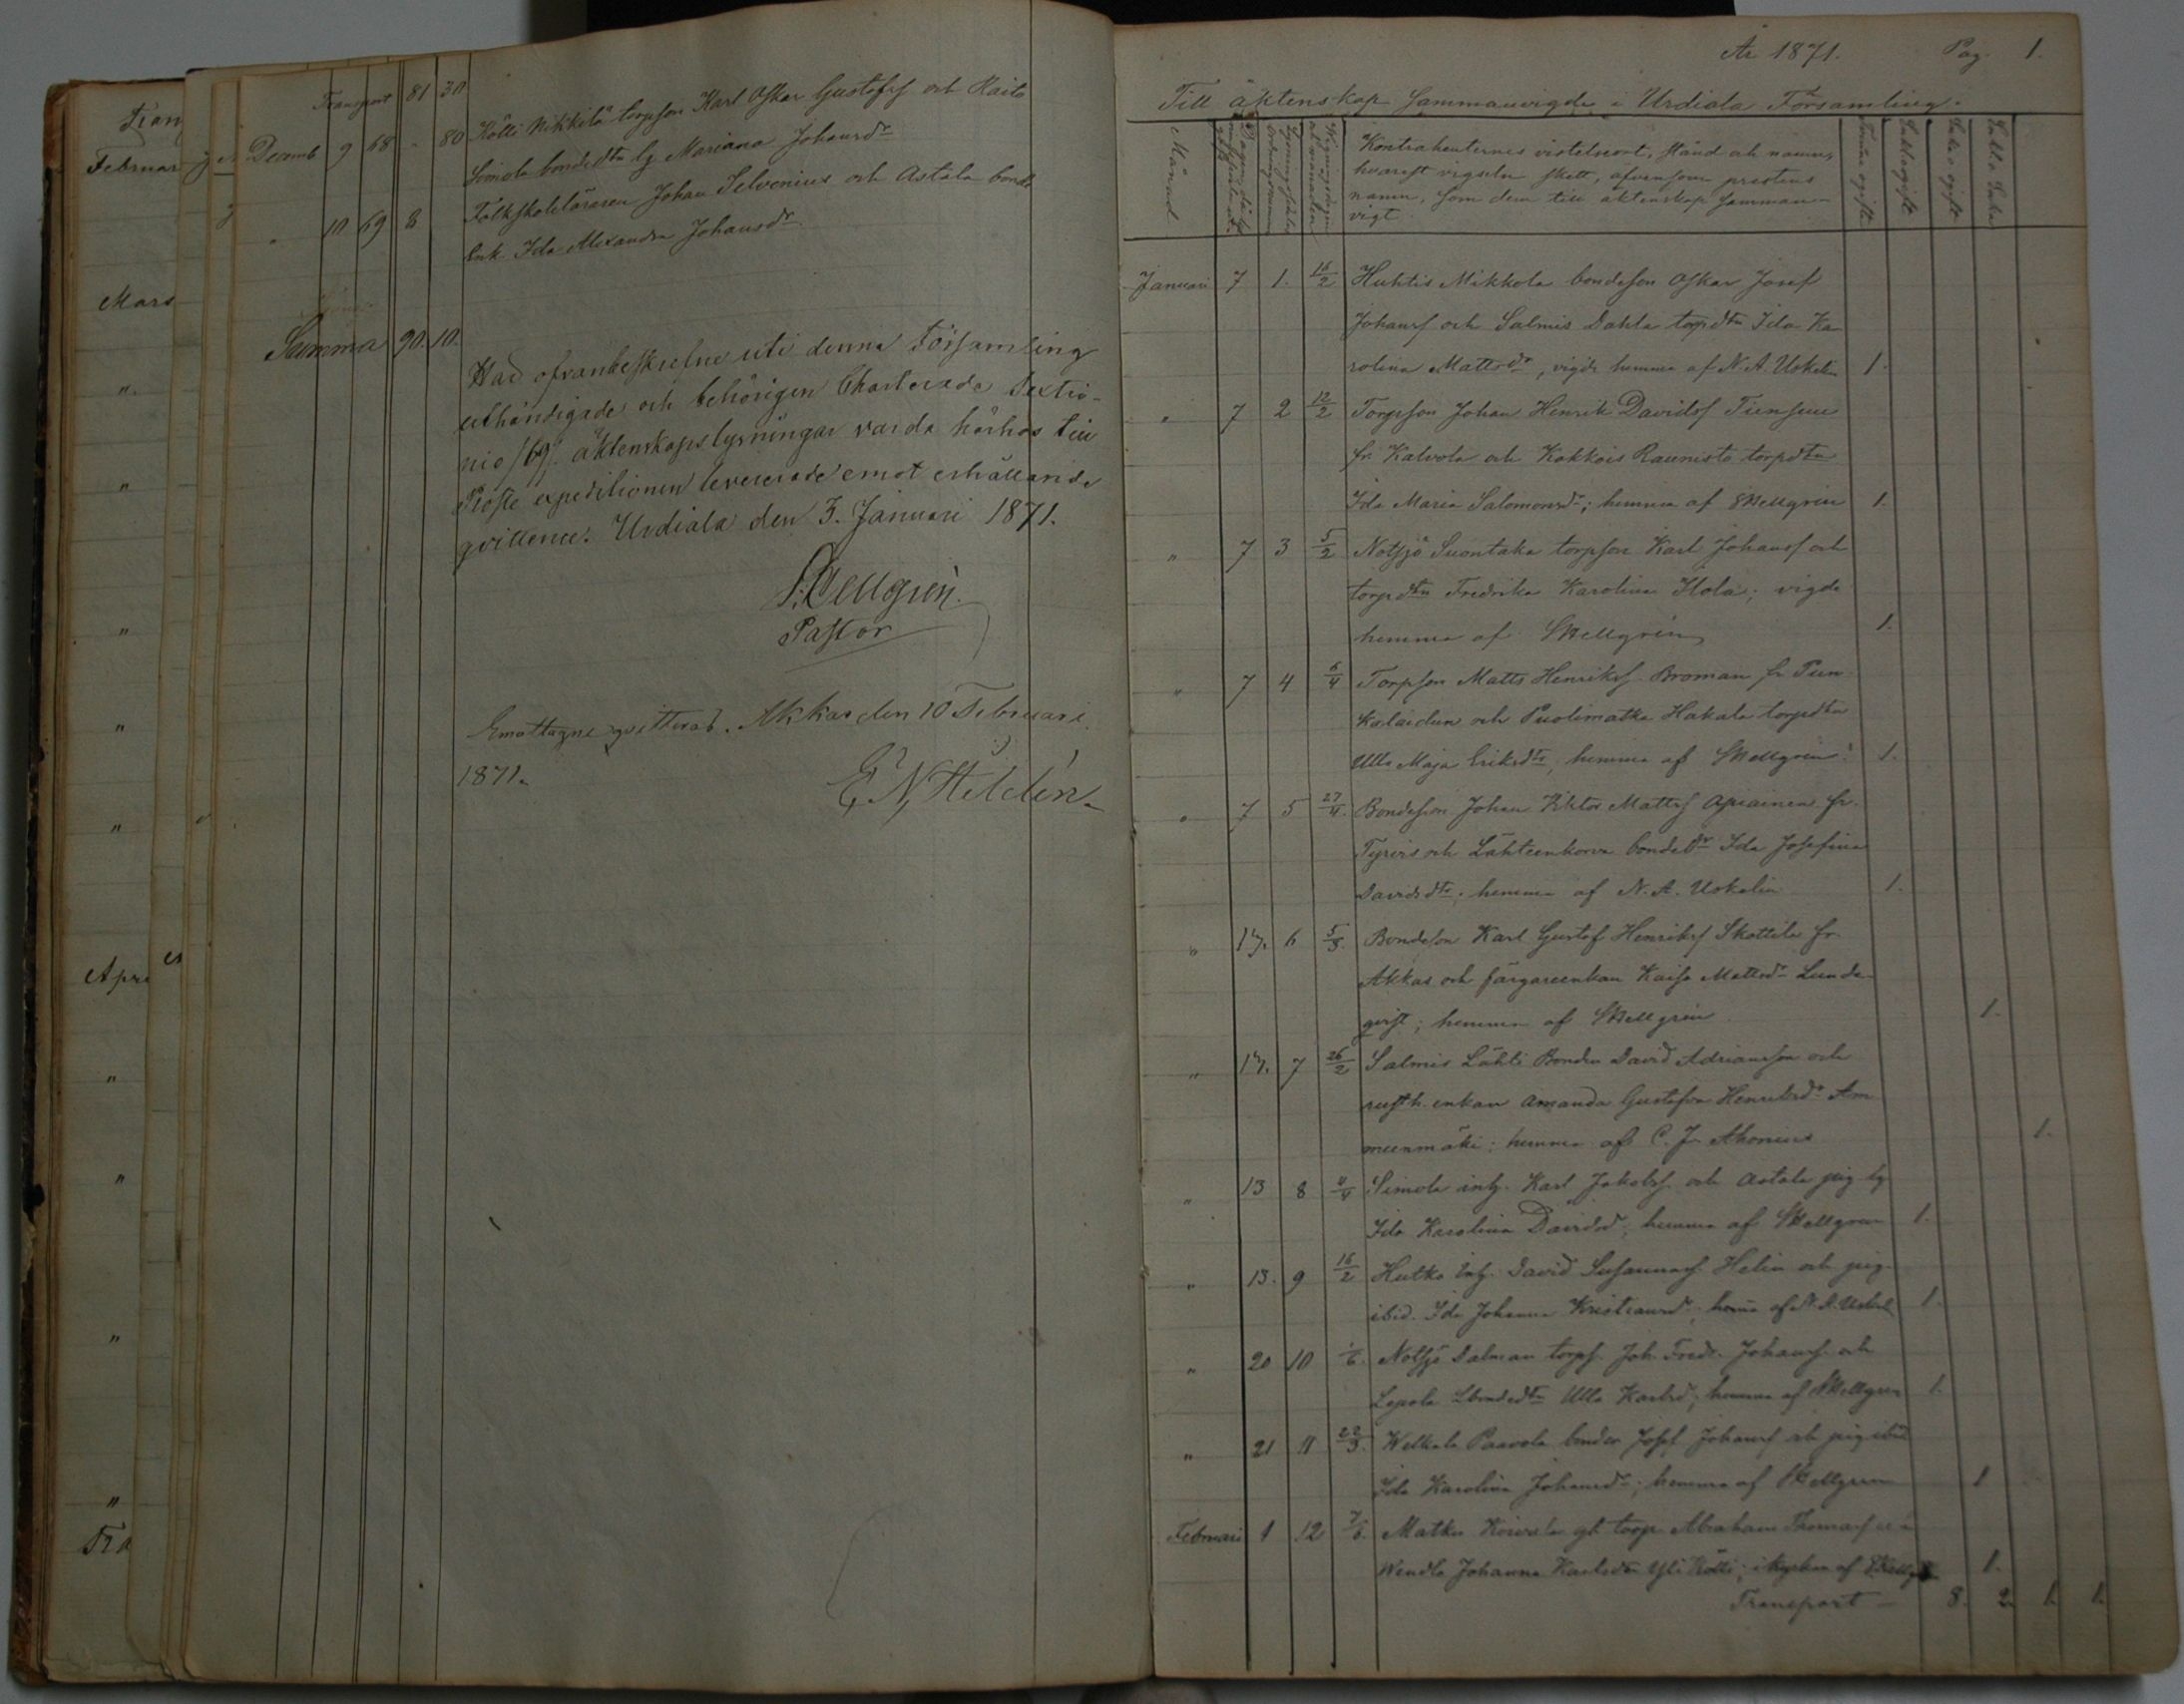 Tran
Februar
Mars
"
"
"
"
"
Apri
"
"
"
"
Tra
Transport 81 30
Decemb 9 68 " 80 Kölli Nikkilä torpson Karl Oskar Gustafss och Raito
Simola bondedtn lg Mariana Johansdr
" 10 69 8 Folkskoleläraren Johan Selvenius och Astala bonde
Enk. Ida Alexandra Johansdr
Summa 90. 10.
Had ofvanbeskrefne uti denna Församling
uthändigade och behörigen Charterade Sextio-
nio /69/. äktenskapslysningar varda härhos till
Proste expeditionen levererade emot erhållande
qvittence. Urdiala den 3. Januari 1871.
S: Kellgrén.
Pastor
Emottagne qvitteras. Akkas den 10 Februari
1871.
E. N. Heldén
År 1871. Pag. 1.
Till äktenskap Sammanvigde i Urdiala Församling.
Månad
Kontrahenternes vistelseort, stånd och namn,
hvarest vigseln skett, äfvensom prestens
namn, som dem till äktenskap samman-
vigt
Januari 7 1. 16/2 Huhtis Mikkola bondeson Oskar Josef
Johanss och Salmis Dahla torpdtn Ida Ka
rolina Mattsdr, vigde hemma af N. A. Uskelin 1.
" 7 2 12/2 Torpson Johan Henrik Davidss Tunsuu
fr. Kalvola och Kokkois Raunisto torpdtn
Ida Maria Salomonsdr; hemma af SKellgrén 1.
" 7 3 5/2 Notsjö Suontaka torpson Karl Johanss och
torpdtn Fredrika Karolina Hola; vigde
hemma af SKellgrén 1.
" 7 4 6/4 Torpson Matts Henrikss Broman fr. Pun
kalaidun och Puolimatka Hakala torpdtn
Ulla Maja Eriksdtr, hemma af SKellgrén 1.
" 7 5 27/4. Bondeson Johan Viktor Mattss Apiainen fr.
Tyrvis och Lähteenkorva bondedr Ida Josefina
Davidsdtr. hemma af N. A. Uskelin 1.
" 13. 6 5/3. Bondeson Karl Gustaf Henrikss Skottila fr.
Akkas och färgareenkan Kaisa Mattsdr Lund
qvist; hemma af SKellgrén 1.
" 13. 7 26/2 Salmis Lähti Bonden David Adriansson och
rusth. enkan Amanda Gustafva Henriksdr Am
meenmäki; hemma af C. J. Ahonius 1.
" 13 8 4/4 Simola inh. Karl Jakobss och Astala pig lg
Ida Karolina Davidsd, hemma af SKellgren 1.
" 13. 9 16/2 Hutko Inh. David Susannass Helin och pig.
ibid. Ida Johanna Kristiansd, hema af N. A. Uskel 1.
" 20 10 1/6. Notsjö Dalman torps. Joh. Fredr. Johanss och
Lepola Lbondedtn Ulla Karlsd; hemma af SKellgren 1.
" 21 11 22/3. Welkala Paavola bonden Josef Johanss och pig ibid
Ida Karolina Johansdr; hemma af SKellgren 1
Februari 1 12 7/6. Matku Koivula gl torp Abraham Thomass och
Wendla Johanna Karlsdtr Yli Kölli; i kyrkan af SKellgr 1.
Transport — 8. 2. 1. 1.